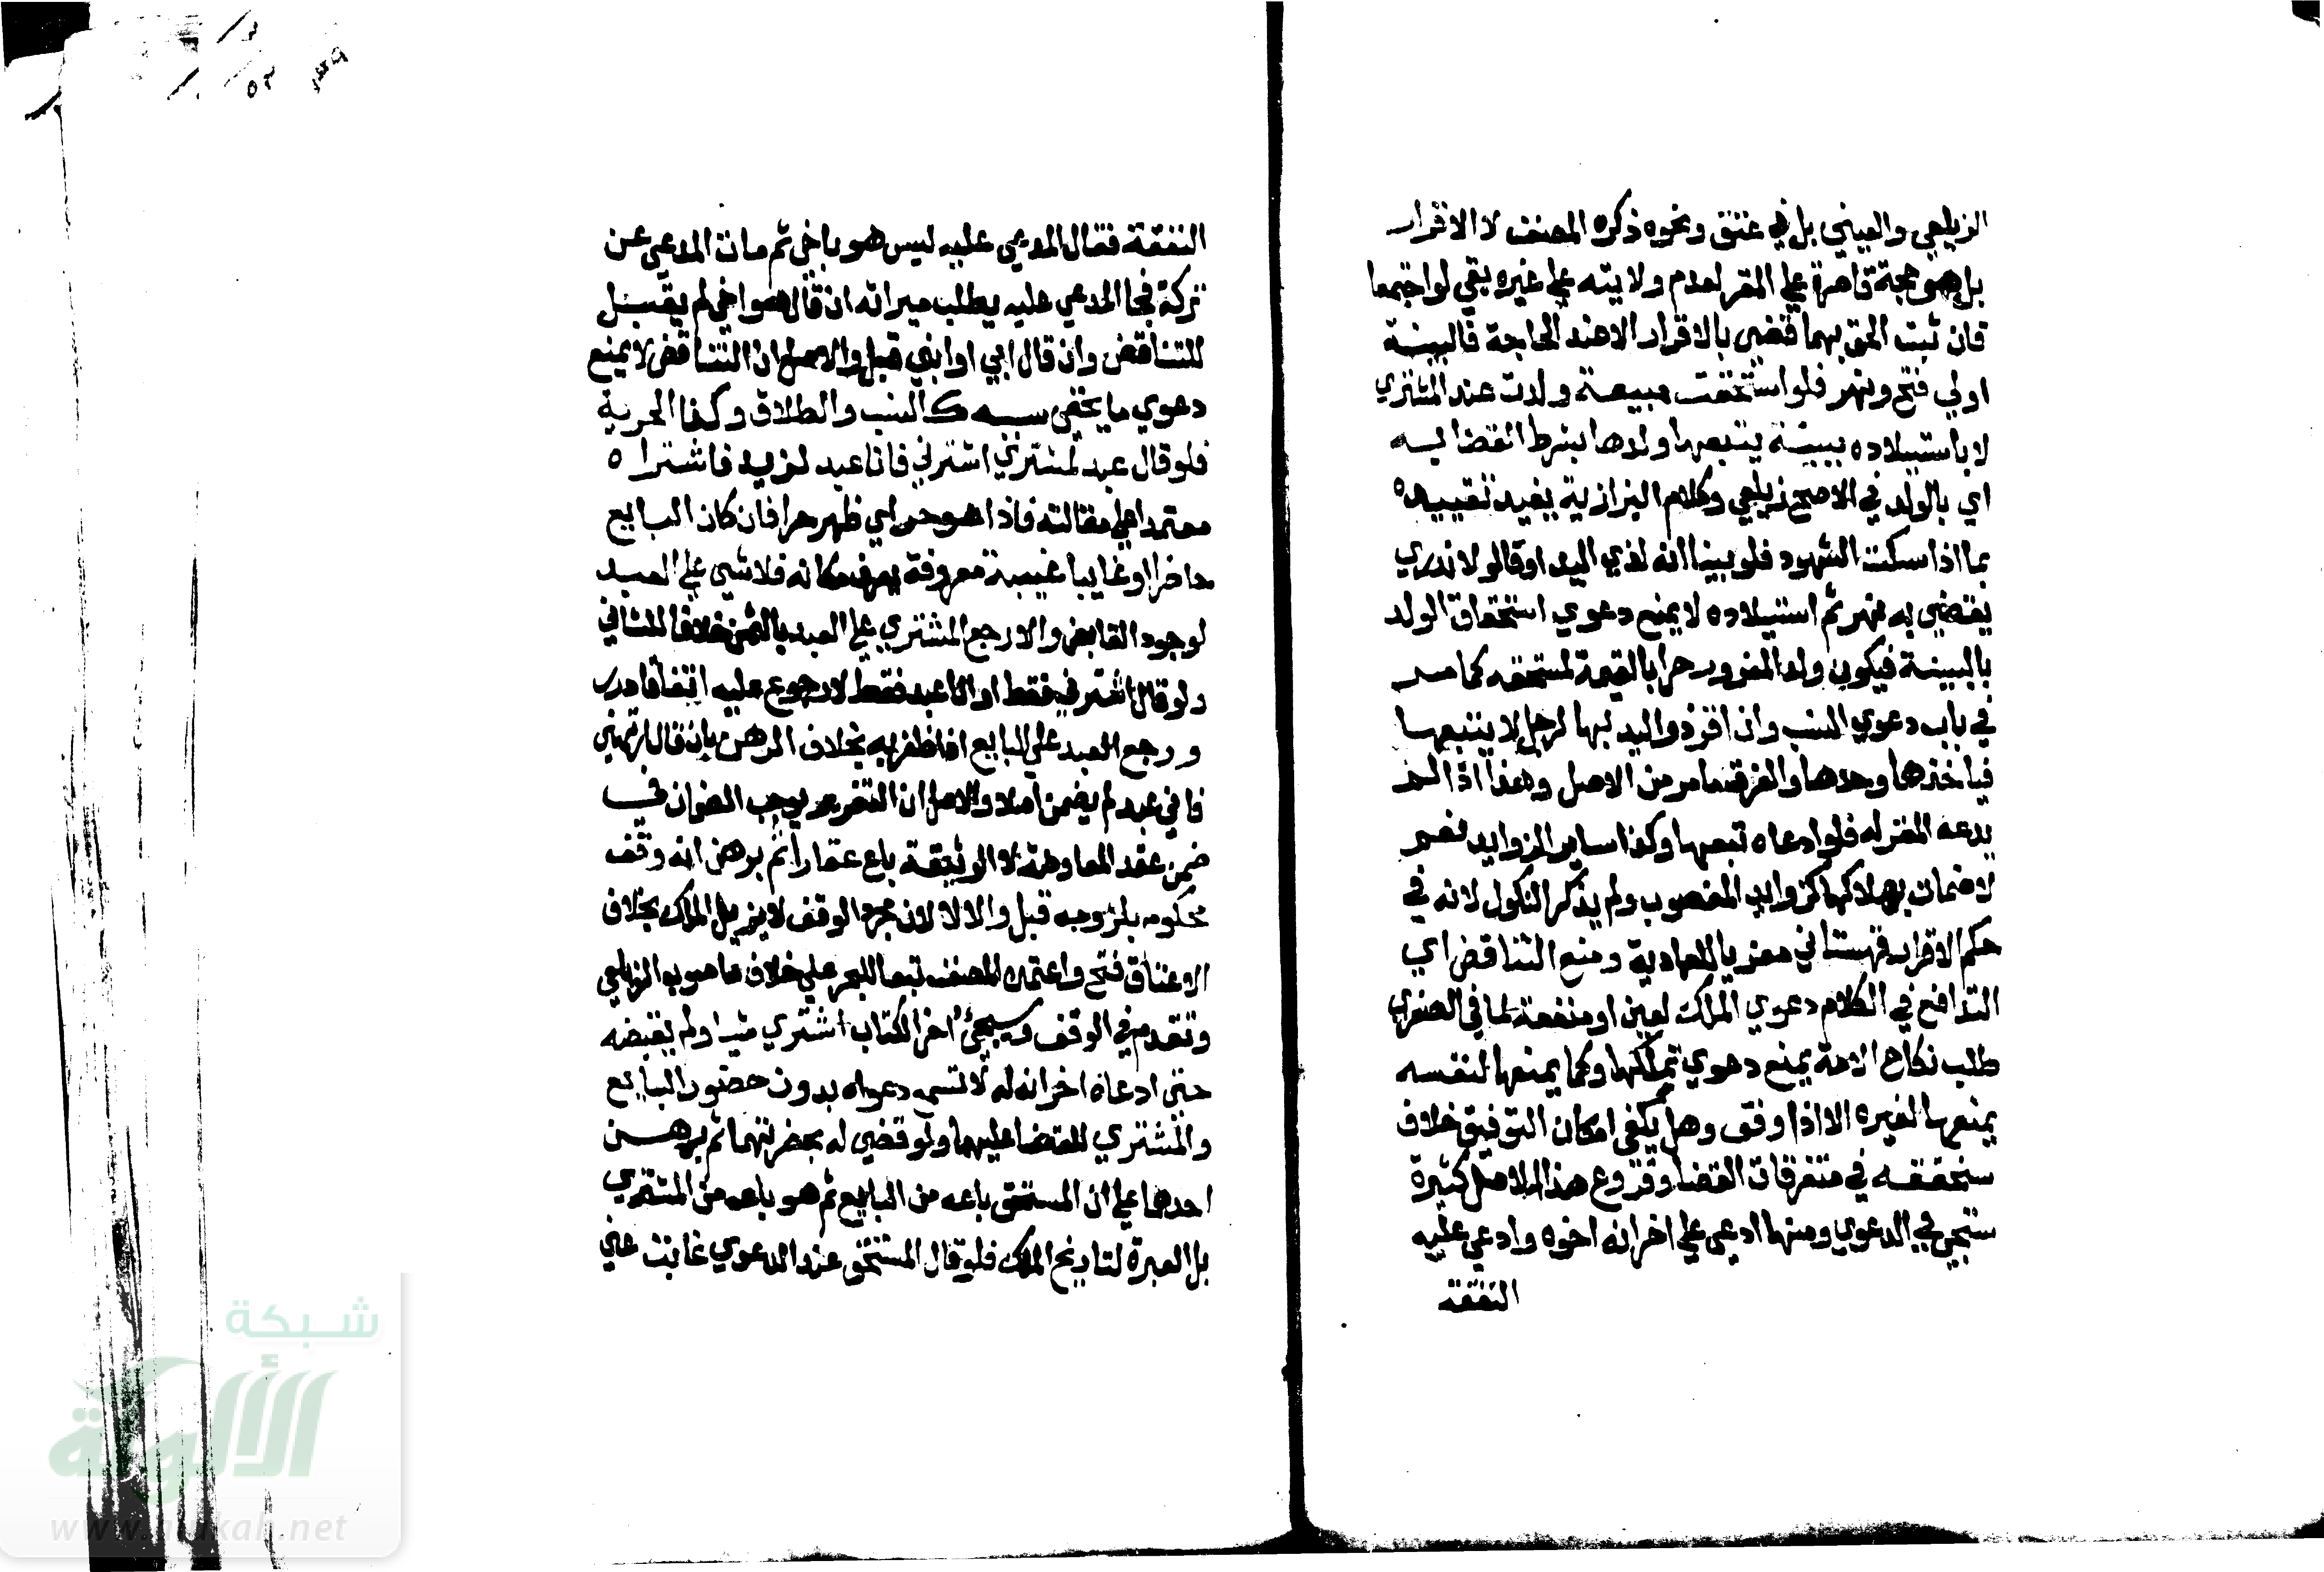 الزيلعي والعيني بل في عتق ونحوه ذكره المصنف لا الاقرار
بل هو حجة قاصرة علي المقر لعدم ولايته علي غيره بقي لو اجتمعا
فان ثبت الحق بهما قضي بالاقرار الا عند الحاجة فالبينة
اولي فتح ونهر فلو استحقت مبيعة ولدت عند المشتري
لا باستيلاده ببينة يتبعها ولدها بشرط القضا به
اي بالولد في الاصح زيلعي وكلام البزازية يفيد تقييده
بما اذا سكت الشهود فلو بينا انه لذي اليد او قالوا لا ندري
يقضي به نهر ثم استيلاده لا يمنع دعوي استحقاق الولد
بالبينة فيكون ولد المغرور حرا بالقيمة لمستحقه كما مر
في باب دعوي النسب وان اقر ذو اليد بها لرجل لا يتبعها
فياخذها وحدها والفرق ما مر من الاصل وهذا اذا لم
يدعه المقر له فلو ادعاه تبعها وكذا ساير الزوايد نعم
لا ضمان بهلاكها كزوايد المغصوب ولم يذكر النكول لانه في
حكم الاقرار قهستاني معزيا للعمادية ومنع التناقض اي
التدافع في الكلام دعوي الملك لعين او منفعة لما في الصغري
طلب نكاح الامة يمنع دعوي تملكها وكما يمنعها لنفسه
يمنعها لغيره الا اذا وفق وهل يكفي امكان التوفيق خلاف
سنحققه في متفرقات القضا وفروع هذا الاصل كثيرة
ستجي في الدعوي ومنها ادعي علي اخر انه اخوه وادعي عليه
النفقة
النفقة فقال المدعي عليه ليس هو باخي ثم مات المدعي عن
تركة فجا المدعي عليه يطلب ميراثه ان قال هو اخي لم يقبل
للتناقض وان قال ابي او ابني قبل والاصل ان التناقض لا يمنع
دعوي ما يخفي سببه كالنسب والطلاق وكذا الحرية
فلو قال عبد لمشتري اشترني فانا عبد لزيد فاشتراه
معتمدا علي مقالته فاذا هو حر اي ظهر حرا فان كان البايع
حاضرا او غايبا غيبة معروفة يعرف مكانه فلا شي علي العبد
لوجود القابض والا رجع المشتري علي العبد بالثمن خلافا للثاني
ولو قال اشترني فقط او انا عبد فقط لا رجوع عليه اتفاقا درر
ورجع العبد علي البايع اذا ظفر به بخلاف الرهن بان قال ارتهني
فاني عبد لم يضمن اصلا والاصل ان التغرير يوجب الضمان في
ضمن عقد المعاوضة لا الوثيقة باع عقارا ثم برهن انه وقف
محكوم بلزومه قبل والا لا لان مجرد الوقف لا يزيل الملك بخلاف
الاعتاق فتح واعتمده المصنف تبعا للبحر علي خلاف ما صوبه الزيلعي
وتقدم في الوقف وسيجئ اخر الكتاب اشتري شيا ولم يقبضه
حتي ادعاه اخر انه له لا تسمع دعواه بدون حضور البايع
والمشتري للقضا عليهما ولو قضي له بحضرتهما ثم برهن
احدهما علي ان المستحق باعه من البايع ثم هو باعه من المشتري
بل العبرة لتاريخ الملك فلو قال المستحق عند الدعوي غابت عني
شبكة
الألوكة
www.alukah.net